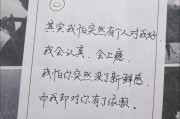 其实我怕突然有个人对我好,
我会认真、会上瘾
我怕你突然没了新鲜感
而我却对你有了依赖.